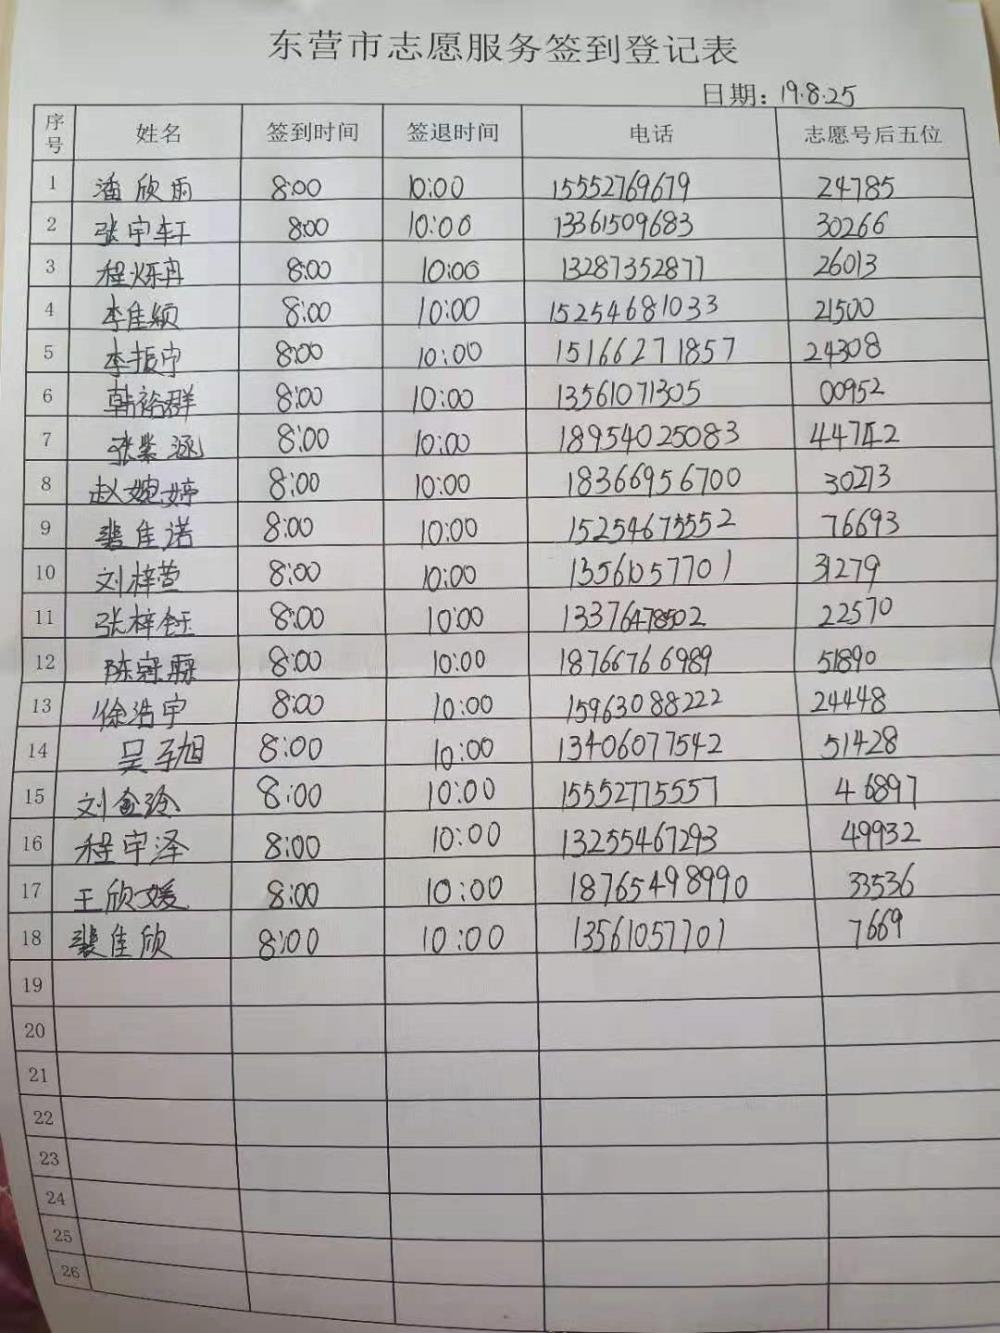 东营市志愿服务签到登记表
日期：19.8.25
序号 姓名 签到时间 签退时间 电话 志愿号后五位
1 潘欣雨 8:00 10:00 15552769679 24785
2 张宇轩 8:00 10:00 13361509683 30266
3 程烁冉 8:00 10:00 13287352877 26013
4 李佳颖 8:00 10:00 15254681033 21500
5 李振宇 8:00 10:00 15166271857 24308
6 韩裕群 8:00 10:00 13561071305 00952
7 张紫涵 8:00 10:00 18954025083 44742
8 赵婉婷 8:00 10:00 18366956700 30273
9 裴佳诺 8:00 10:00 15254675552 76693
10 刘梓萱 8:00 10:00 13561057701 31279
11 张梓钰 8:00 10:00 13376478502 22570
12 陈冠霖 8:00 10:00 18766766989 51890
13 徐浩宇 8:00 10:00 15963088222 24448
14 吴子旭 8:00 10:00 13406077542 51428
15 刘金玲 8:00 10:00 15552775557 46897
16 程宇泽 8:00 10:00 13255467293 49932
17 王欣媛 8:00 10:00 18765498990 33536
18 裴佳欣 8:00 10:00 13561057701 7669
19
20
21
22
23
24
25
26